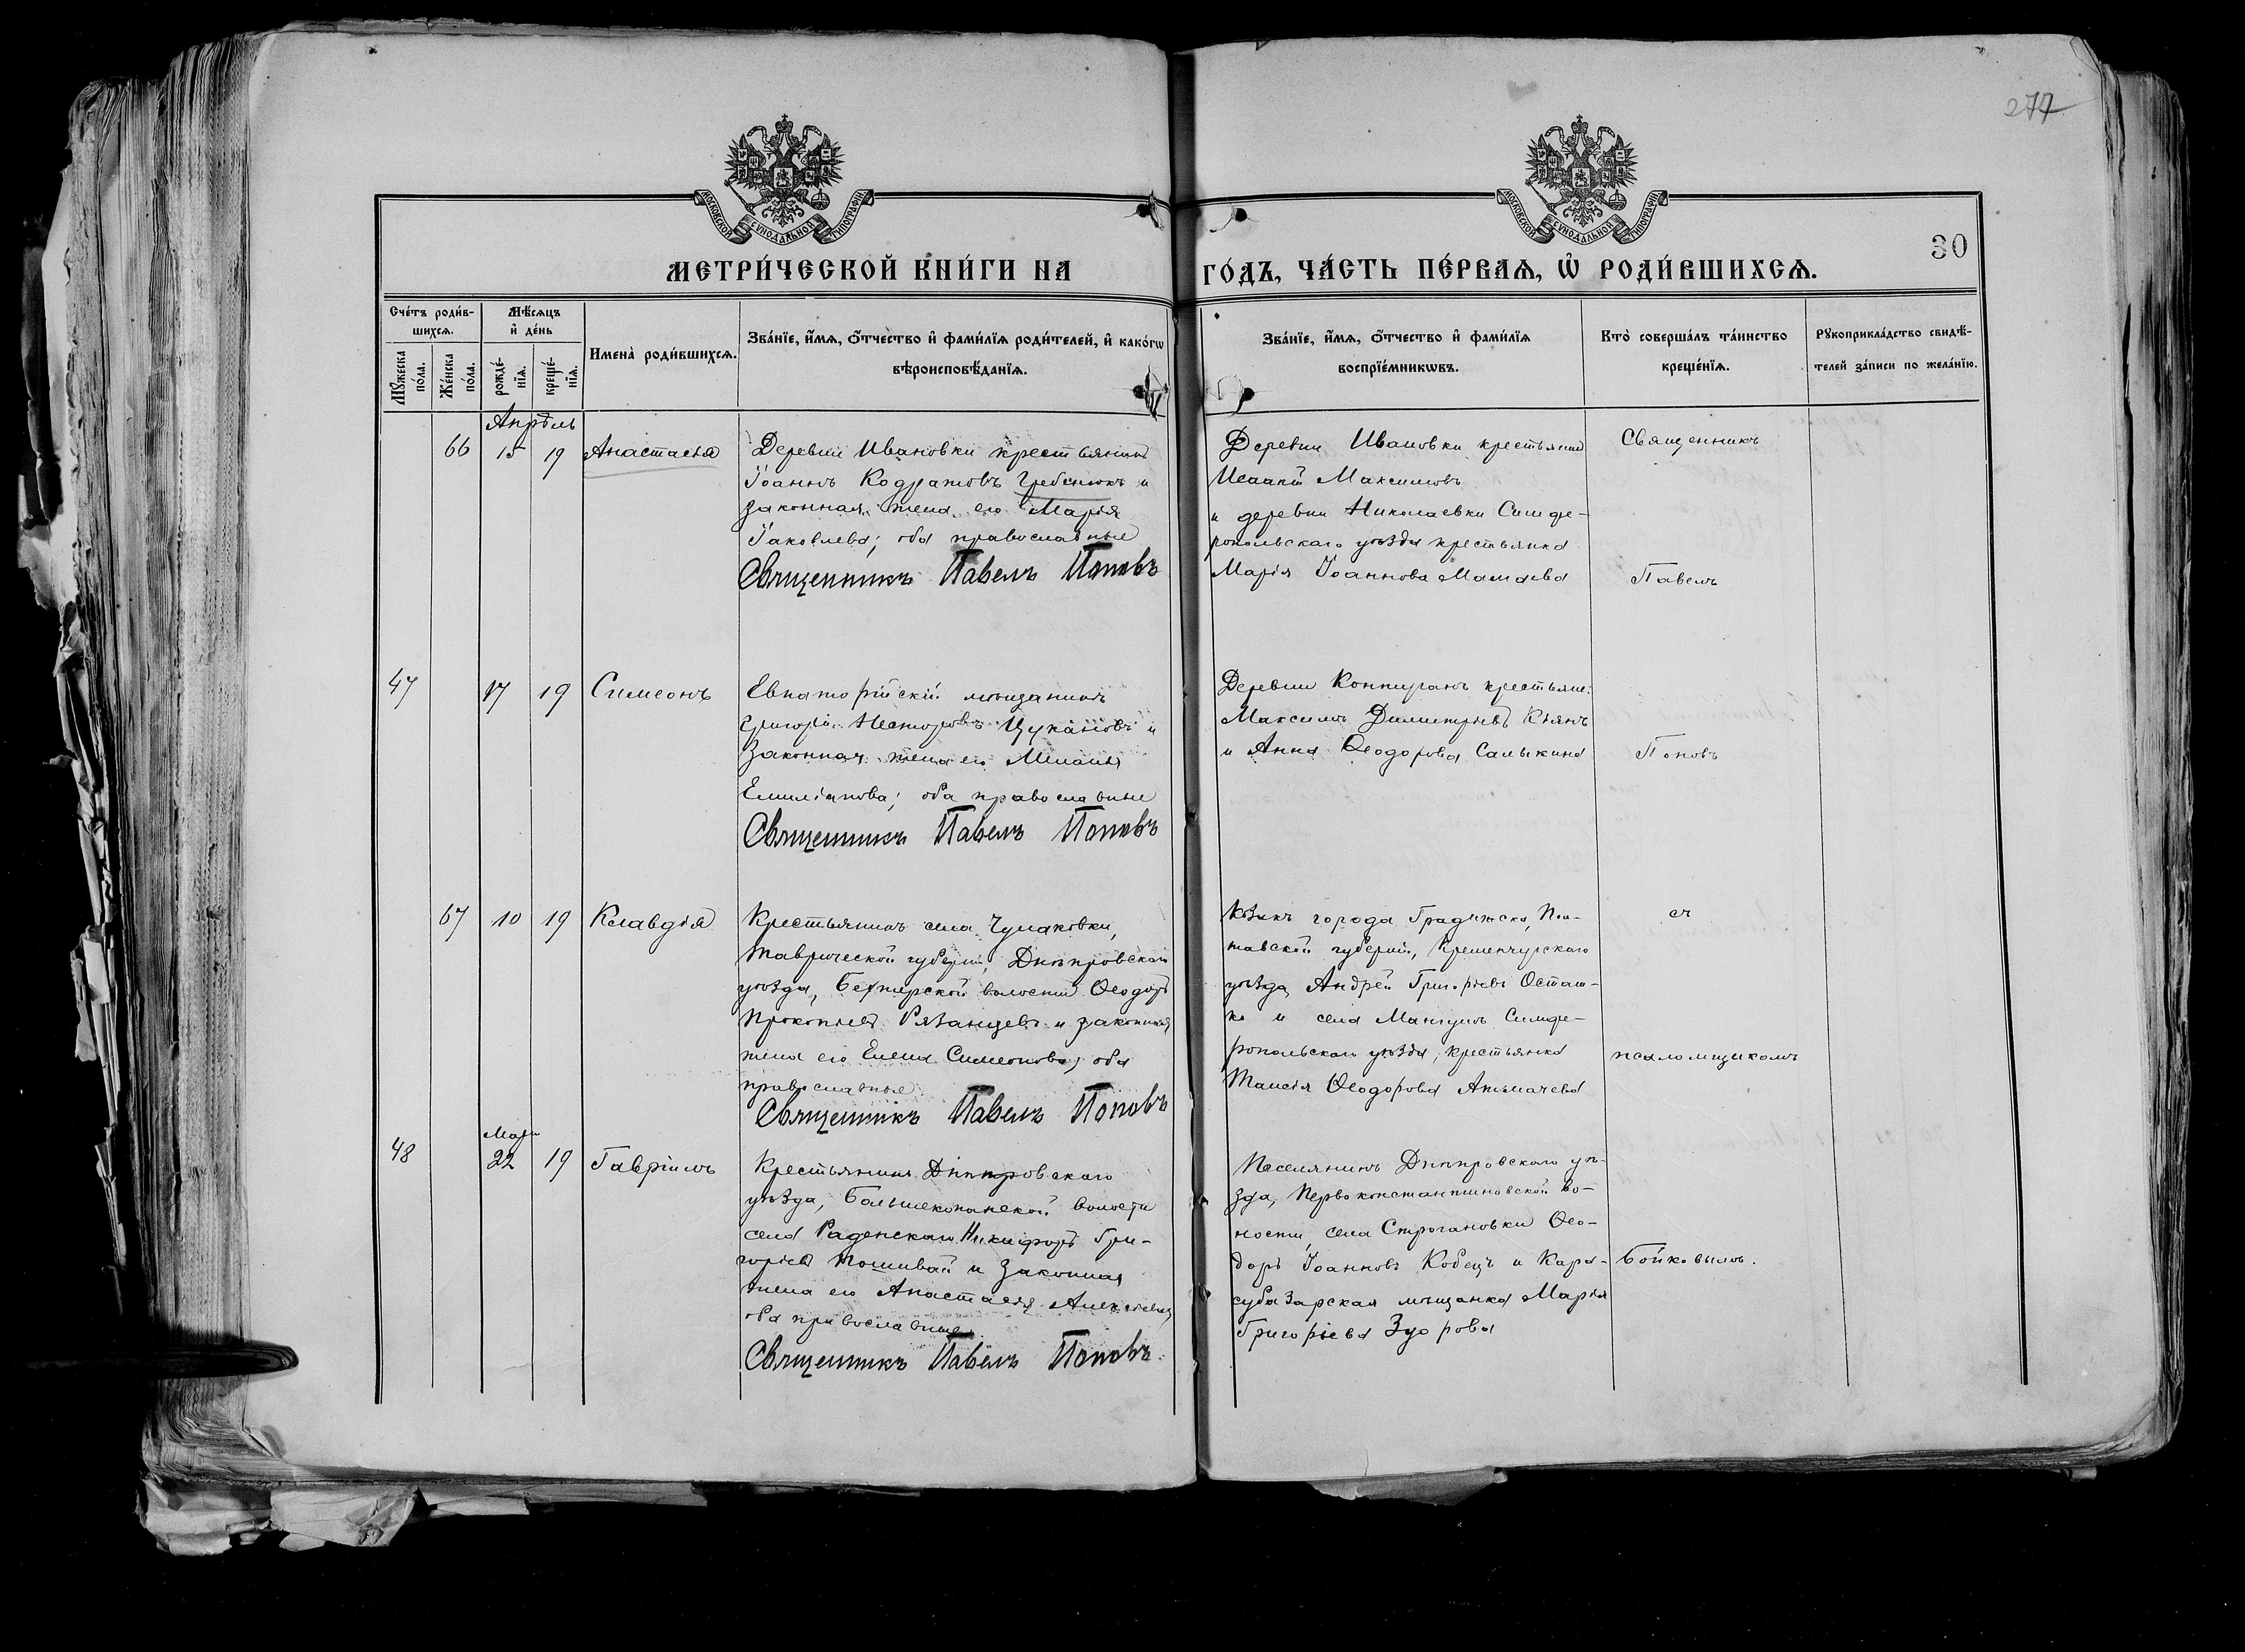 277
МОСКОВСКОЙ СѴНОДАЛЬНОЙ ТИПОГРАФІИ
МОСКОВСКОЙ СѴНОДАЛЬНОЙ ТИПОГРАФІИ
30
МЕТРИ́ЧЕСКОЙ КНИ́ГИ НА
ГО́ДЪ, ЧА́СТЬ ПЕ́РВАѦ, Ѡ҆ РОДИ́ВШИХСѦ.
Сче́тъ роди́в-
шихсѧ.
Мꙋ́жеска по́ла.
Же́нска по́ла.
Мѣ́сѧцъ
и҆ де́нь
рожде́-
нїѧ.
креще́-
нїѧ.
Имена̀ роди́вшихсѧ.
Зва́нїе, и҆́мѧ, ѻ҆́тчество и҆ фами́лїѧ роди́телей, и҆ како́гѡ
вѣроисповѣ́данїѧ.
Зва́нїе, и҆́мѧ, ѻ҆́тчество и҆ фами́лїѧ
воспрїе́мникѡвъ.
Кто̀ соверша́лъ та́инство
креще́нїѧ.
Рꙋкоприкла́дство свидѣ́-
телей за́писи по жела́нїю.
Апрѣль
66 15 19 Анастасія
Деревни Ивановки крестьянинъ
Іоаннъ Кодратовъ Гребенюкъ и
законная жена его Марія
Іаковлева; оба православные
Священникъ Павелъ Поповъ
Деревни Ивановки крестьянинъ
Исаакій Максимовъ
и деревни Николаевки Симфе-
ропольскаго уѣзда крестьянка
Марія Іоаннова
Священникъ
Павелъ
47 17 19 Симеонъ
Евпаторійскій мѣщанинъ
Григорій Несторовъ Цукановъ и
законная жена его
Емиліанова; оба православные
Священникъ Павелъ Поповъ
Деревни крестьяне:
Максимъ Димитріевъ Кіянъ
и Анна Ѳеодорова Салыкина
Поповъ
67 10 19 Клавдія
Крестьянинъ села Чулаковки,
Таврической губерніи, Днѣпровскаго
уѣзда, Бехтерской волости Ѳеодоръ
Прокопіевъ Рязанцевъ и законная
жена его Елена Симеонова, оба
православные
Священникъ Павелъ Поповъ
Козакъ города Градижска, Пол-
тавской губерніи, Кременчугскаго
уѣзда, Андрей Григорьевъ Осташ-
ко и села Мангушъ Симфе-
ропольскаго уѣзда, крестьянка
Таисія Ѳеодорова
съ
псаломщикомъ
Март
48 22 19 Гавріилъ
Крестьянинъ Днѣпровскаго
уѣзда, Большекопанской волости
села Раденскаго Никифоръ Гри-
горьевъ Пошивай и законная
жена его Анастасія Алексѣева,
оба православные
Священникъ Павелъ Поповъ
Поселянинъ Днѣпровскаго уѣ-
зда, Первоконстантиновской во-
лости, села Строгановки Ѳео-
доръ Іоанновъ Кобецъ и Кара-
субазарская мѣщанка Марія
Григорьева
Бойковымъ.